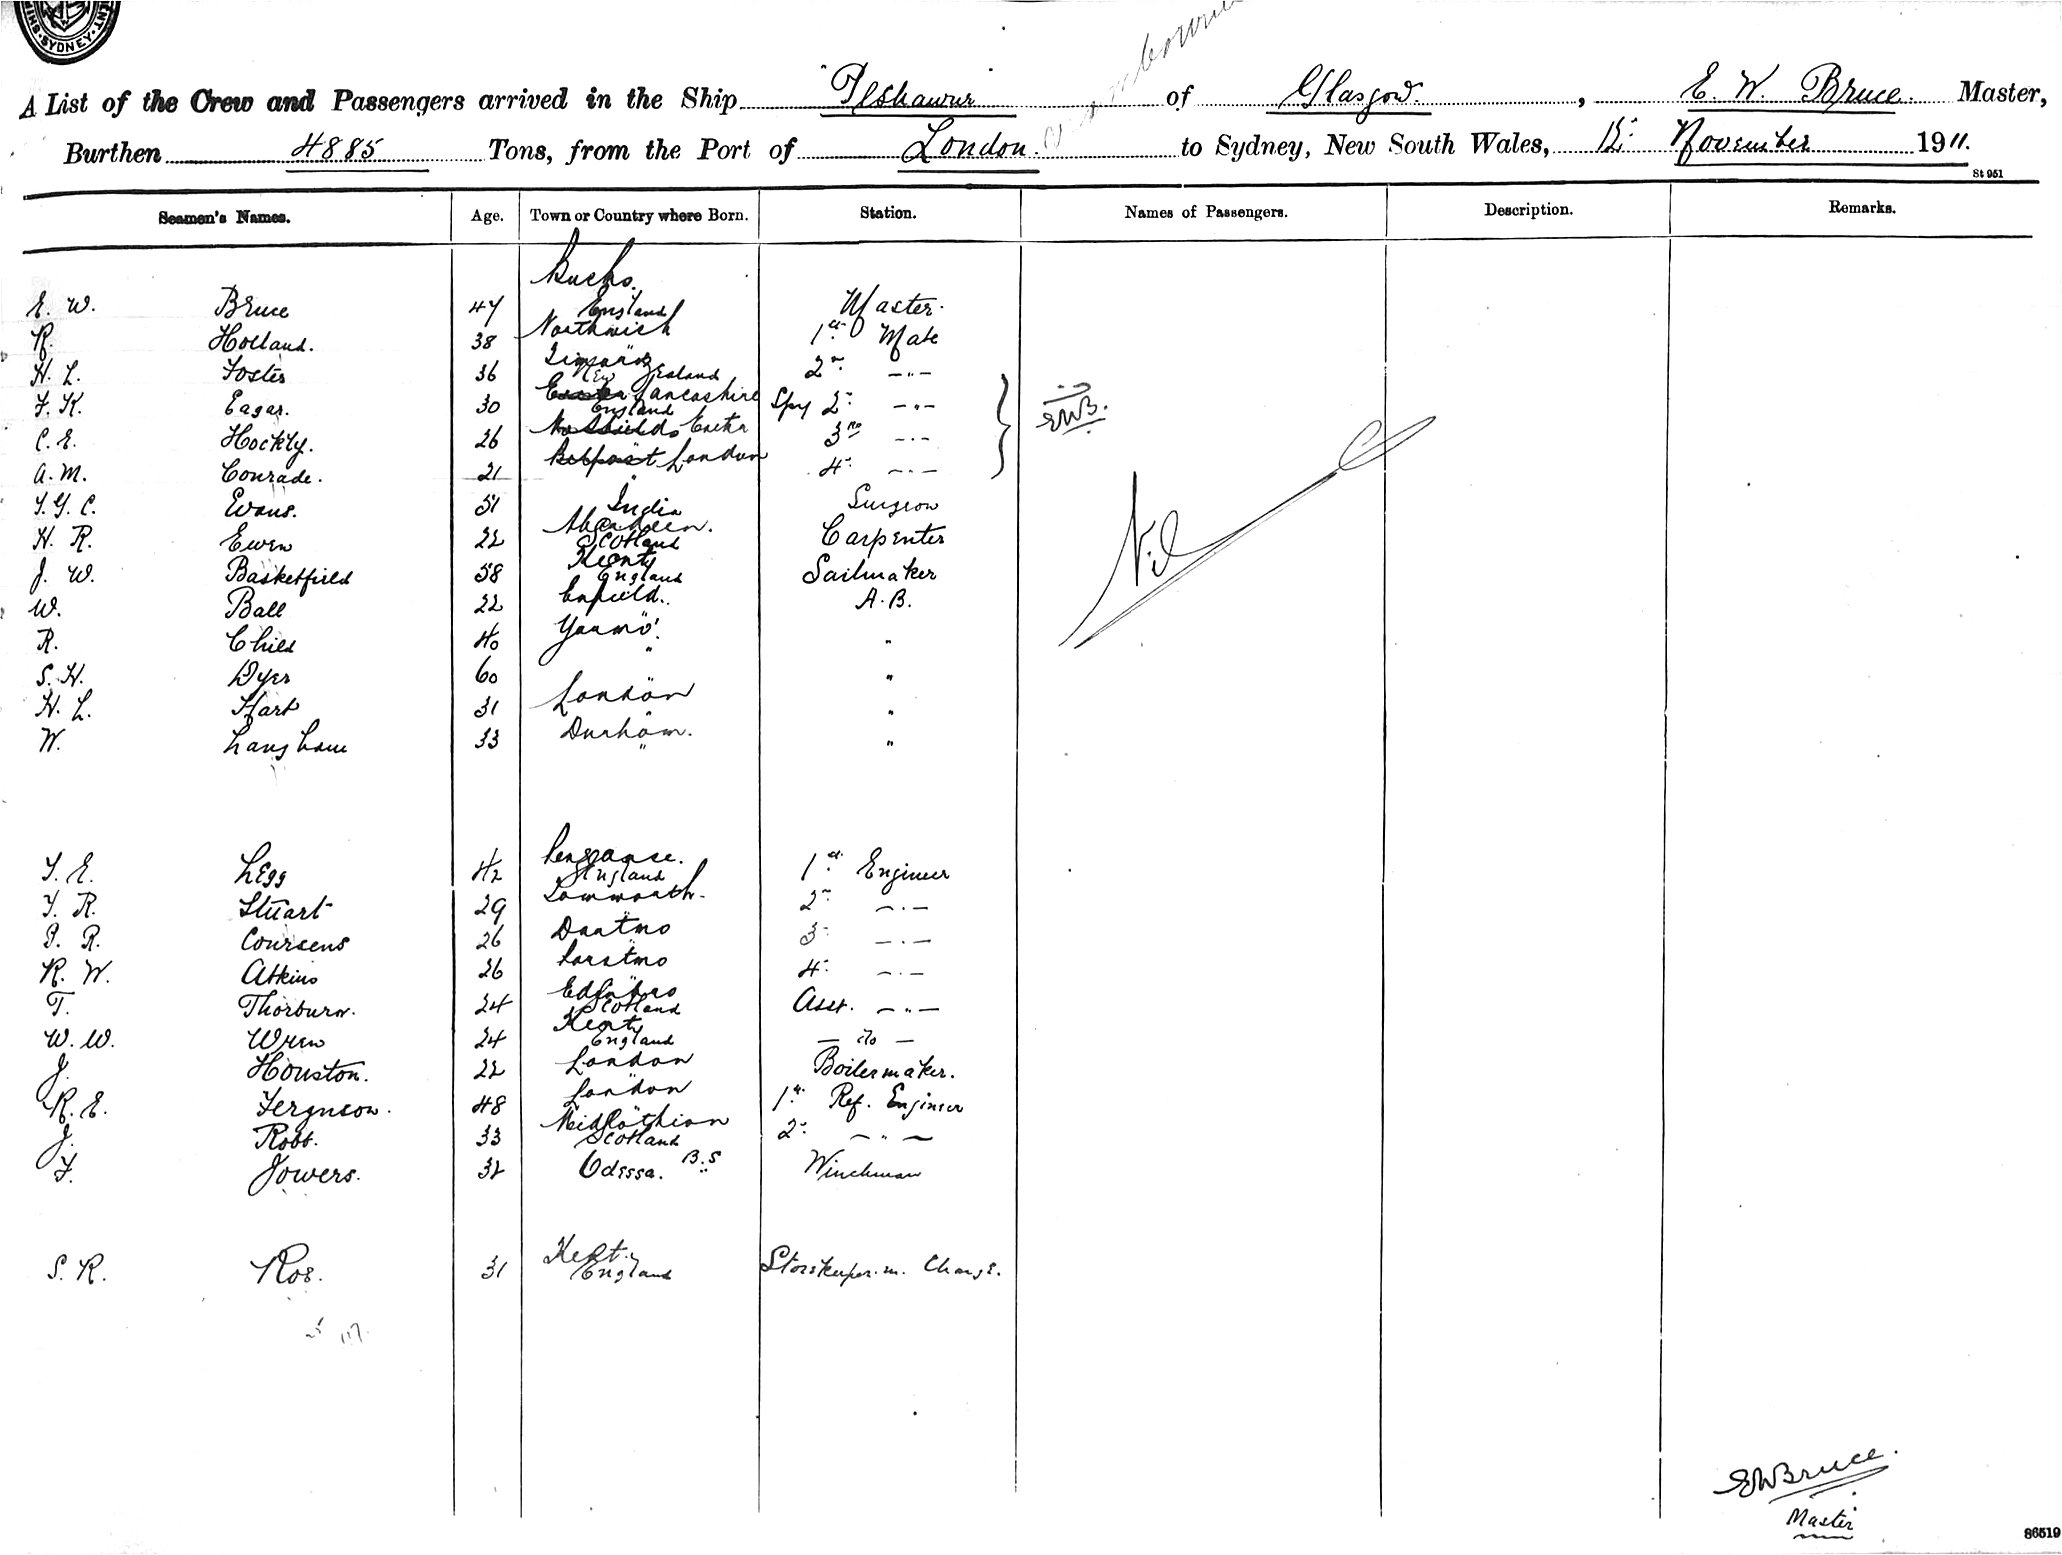 SYDNEY
A List of the Crew and Passengers arrived in the Ship "Peshawur of Glasgow, E. W. Bruce. Master,
Burthen 4885 Tons, from the Port of London. to Sydney, New South Wales, November 1911.
St 951
Seamen's Names. Age. Town or Country where Born. Station. Names of Passengers. Description. Remarks.
Bucks.
E. W. Bruce 47 England Master.
R. Holland. 38 Northwich 1st Mate
H. L. Foster 36 Timaru New Zealand 2nd —"—
F. K. Eagar. 30 Lancashire England 2nd —"—
EWB.
C. E. Hockly. 26 No Shields Exeter 3rd —"—
A. M. Conrade. 21 Belfast London 4th —"—
Nil
T. G. C. Evans. 51 India Surgeon
H. R. Ewen 22 Aberdeen. Scotland Carpenter
J. W. Basketfield 58 Kent England Sailmaker
W. Ball 22 Enfield. A.B.
R. Child 40 Yarmo' "
S. H. Dyer 60 " "
H. L. Hart 31 London "
W. Langham 33 Durham. "
T. E. Legg 42 Penzance. England 1st Engineer
T. R. Stuart 29 Tamworth. 2nd —"—
P. R. Coursens 26 Dartmo 3rd —"—
R. W. Atkins 26 Portsmo 4th —"—
T. Thorburn. 24 Edinboro Scotland Asst. —"—
W. W. Wren 24 Kent England — do —
J. Houston. 22 London Boilermaker.
R. E. Ferguson. 48 London 1st Ref. Engineer
J. Robb. 33 Midlothian Scotland 2nd —"—
F. Jowers. 32 Odessa. B.S Winchman
S. R. Roe. 31 Kent. England Storekeeper in Charge.
EWBruce.
Master
86519